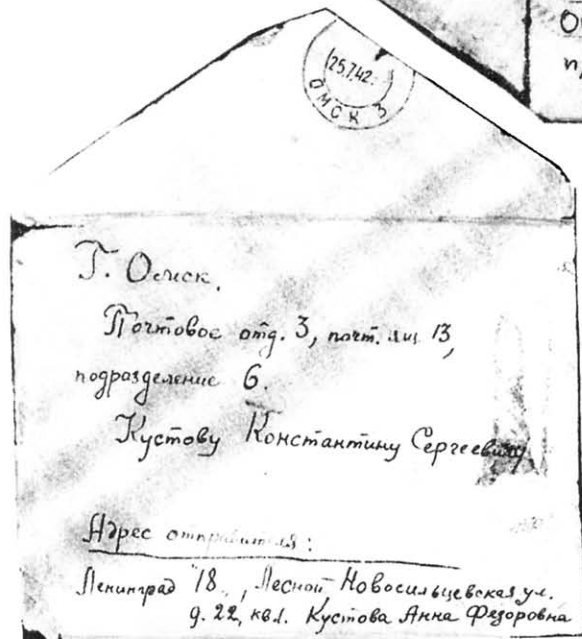 25.7.42.
ОМСК 3
Г. Омск.
Почтовое отд. 3, почт. ящ 13,
подразделение 6.
Кустову Константину Сергеевичу
Адрес отправителя:
Ленинград 18, Лесной, Новосильцевская ул.
д. 22, кв 1. Кустова Анна Федоровна